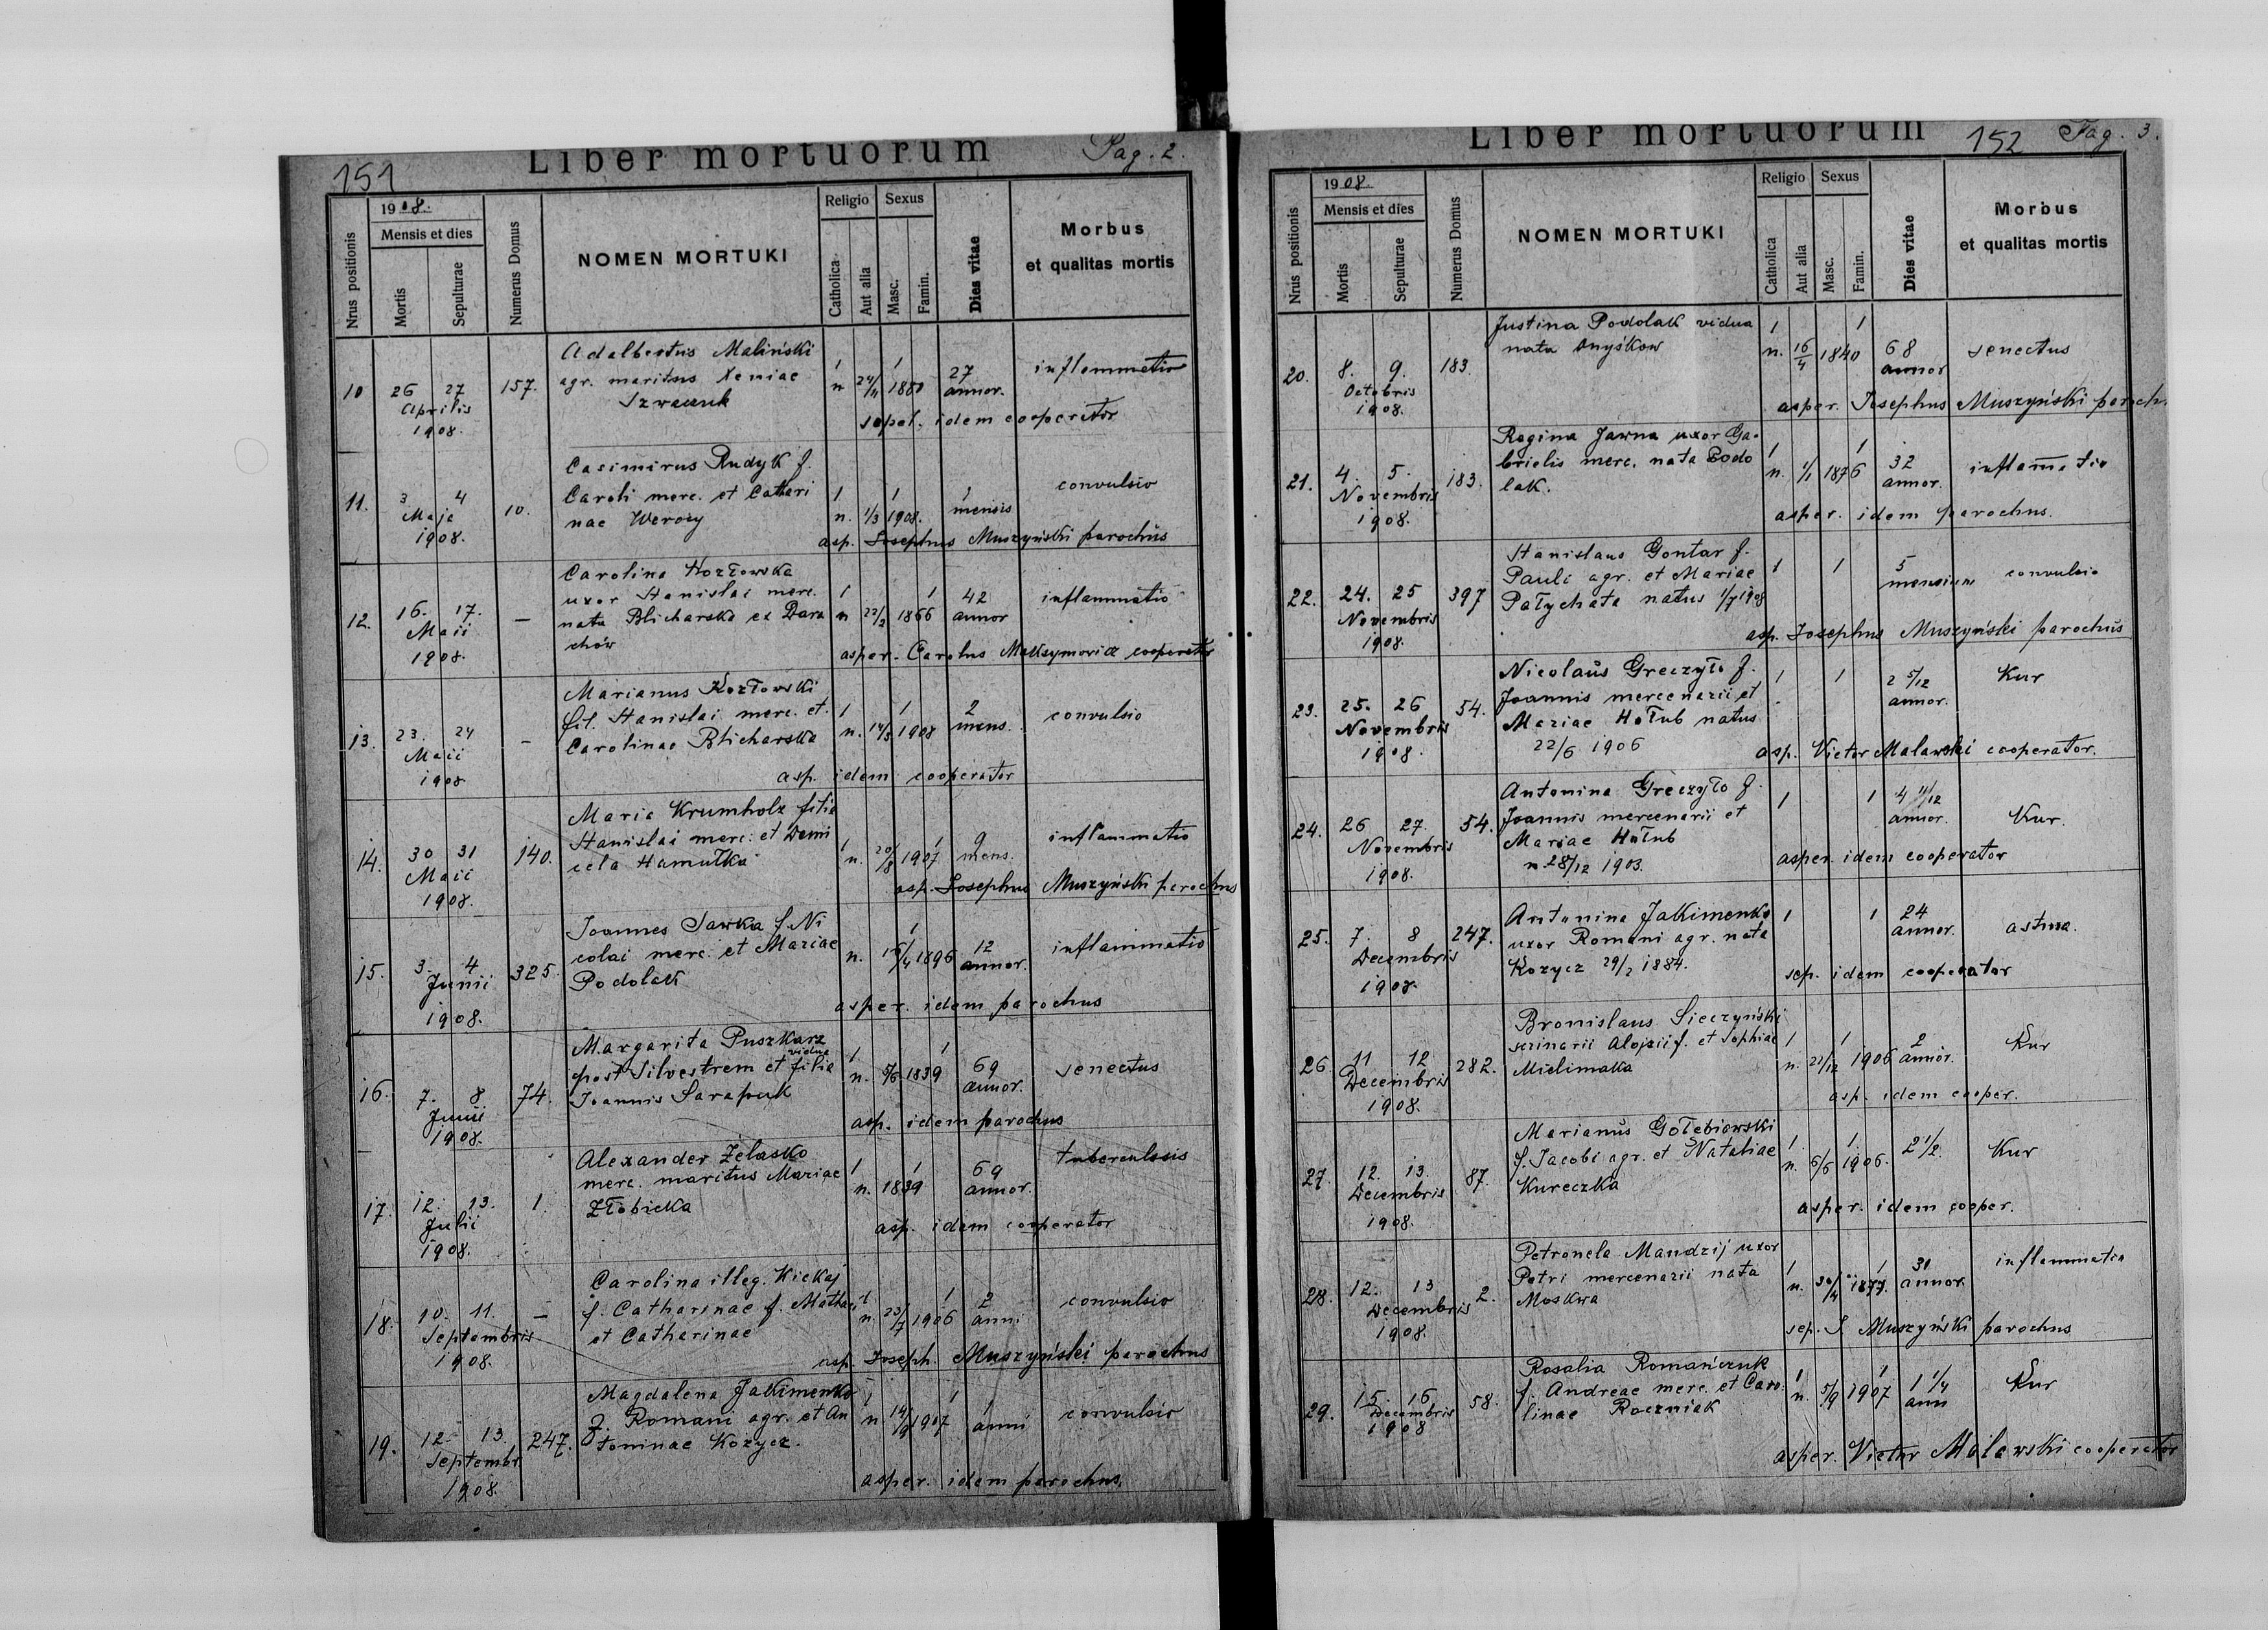 151
Liber mortuorum
Pag. 2.
Nrus positionis
1908.
Mensis et dies
Mortis
Sepulturae
Numerus Domus
NOMEN MORTUKI
Religio
Catholica
Aut alia
Sexus
Masc.
Famin.
Dies vitae
Morbus
et qualitas mortis
10 26 27 157. Adalbertus Maliński 1 1 27 inflammatio
Aprilis agr. maritus Xeniae n 1880 annor.
1908.
sepel. idem cooperator
11. 3 4 10. Casimirus Rudyk f. 1 1 1 convulsio
Maja Caroli merc. et Cathari n. 1/3 1908. mensis
1908. nae Werozy
asp. Josephus Muszyński parochus
12. 16. 17. — Carolina Kozłowska 1 1 42 inflammatio
Maii uxor Stanislai merc. n 22/2 1866 annor
1908. nata Blicharska ex Dara
chów
asper. Carolus cooperator
13. 23. 24 - Marianus Kozłowski 1 1 2 convulsio
Maii fil. Stanislai merc. et n. 14/3 1908 mens.
1908 Carolinae Blicharska
asp. idem cooperator
14. 30 31 140. Maria Krumholz filia 1 1 9 inflammatio
Maii Stanislai merc. et Domi n. 20/8 1907 mens.
1908. cela Hamułka
asp. Josephus Muszyński parochus
15. 3. 4 325. Joannes Sawka f. Ni 1 12 inflammatio
Junii colai merc. et Mariae n. 1896 annor.
1908. Podolak
asper. idem parochus
16. 7. 8 74. Margarita Puszkarz 1 1 69 senectus
Junii post Silvestrem vidua et filia n. 1839 annor.
1908. Joannis Sarapuk
asp. idem parochus
17. 12. 13. 1. Alexander Żelasko 1 1 69 tuberculosis
Julii merc. maritus Mariae n. 1839 annor.
1908. Złobicka
asp. idem cooperator
18. 10. 11. — Carolina illeg. Kickaj 1 1 2 convulsio
Septembris f. Catharinae f. Mathaei n. 23/7 1906 anni
1908. et Catharinae
asp. Joseph. Muszyński parochus
19. 12. 13. 247. Magdalena Jakimenko 1 1 1 convulsio
Septembr. f. Romani agr. et An n 14/9 1907 anni
1908. toninae Kozycz.
asper. idem parochus.
Liber mortuorum
152
Pag. 3.
Nrus positionis
1908.
Mensis et dies
Mortis
Sepulturae
Numerus Domus
NOMEN MORTUKI
Religio
Catholica
Aut alia
Sexus
Masc.
Famin.
Dies vitae
Morbus
et qualitas mortis
20. 8. 9. 183. Justina Podolak vidua 1 1 68 senectus
Octobris nata Onyśkow n. 16/4 1840 annor
1908.
asper. Josephus Muszyński paroch.
21. 4. 5. 183. Regina Jawna uxor Ga- 1 1 32 inflam̄atio
Novembris brielis merc. nata Podo n. 1/1 1876 annor.
1908. lak.
asper. idem parochus.
22. 24. 25 397 Stanislaus Gontar f. 1 1 5 convulsio
Novembris Pauli agr. et Mariae mensium
1908. Pałychata natus 1/7 1908
asp. Josephus Muszyński parochus
23. 25. 26 54. Nicolaus Greczyło f. 1 1 2 5/12 Kur
Novembris Joannis mercenarii et annor.
1908 Mariae Hołub natus
22/6 1906
asp. Victor Malawski cooperator.
24. 26 27. 54. Antonina Greczyło f. 1 1 4 11/12 Kur.
Novembris Joannis mercenarii et annor.
1908. Mariae Hołub
n. 28/12 1903.
asper. idem cooperator
25. 7. 8 247. Antonina Jakimenko 1 1 24 astma.
Decembris uxor Romani agr. nata annor.
1908. Kozycz 29/2 1884.
sep. idem cooperator
26. 11 12 282. Bronislaus Sieczyński 1 1 2 Kur
Decembris Aloisii f. et Sophiae n. 21/12 1906 annor.
1908. Mielimaka
asp. idem cooper.
27. 12. 13. 87. Marianus Gołębiowski 1 1. 2 1/2. Kur
Decembris f. Jacobi agr. et Nataliae n. 6/6 1906.
1908. Kureczka
asper. idem cooper.
28. 12. 13 2. Petronela Mandzij uxor 1 1 31 inflammatio
Decembris Petri mercenarii nata n. 30/4 1877. annor.
1908. Moskwa
sep. J. Muszyński parochus
29. 15. 16 58. Rosalia Romańczuk 1 1 1 1/4 Kur
Decembris f. Andreae merc. et Caro- n. 5/9 1907 ann
1908 linae Roczniak
asper. Victor Malawski cooperator